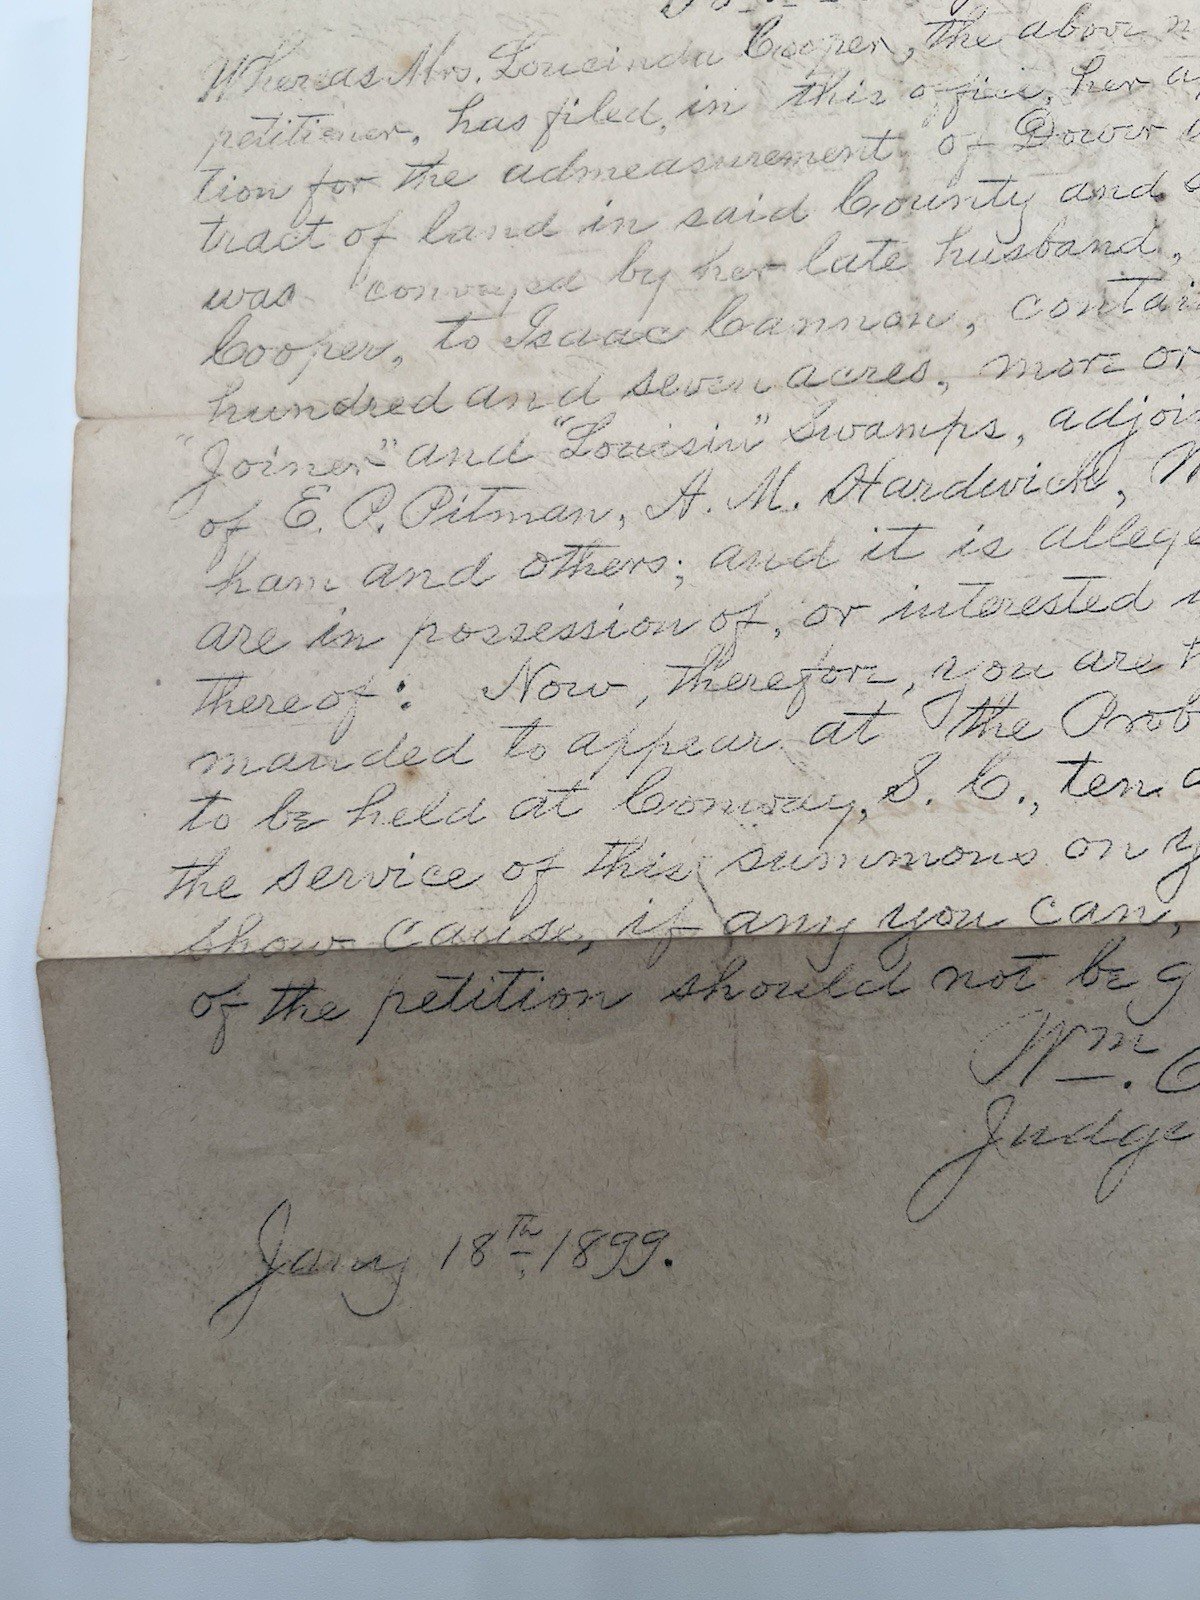 Whereas Mrs. Loucinda Cooper, the above n
petitioner, has filed, in this office, her ap
tion for the admeasurement of Dower
tract of land in said County and
was conveyed by her late husband,
Cooper, to Isaac Cannon, contai
hundred and seven acres, more or
"Joiner" and "Loucsin" Swamps, adjoi
of E. P. Pitman, A. M. Hardwick, W
ham and others; and it is allege
are in possession of, or interested
thereof: Now, therefore, you are
manded to appear at the Prob
to be held at Conway, S. C., ten
the service of this summons on y
show cause, if any you can,
of the petition should not be g
Wm. C
Judge
Jany 18th, 1899.